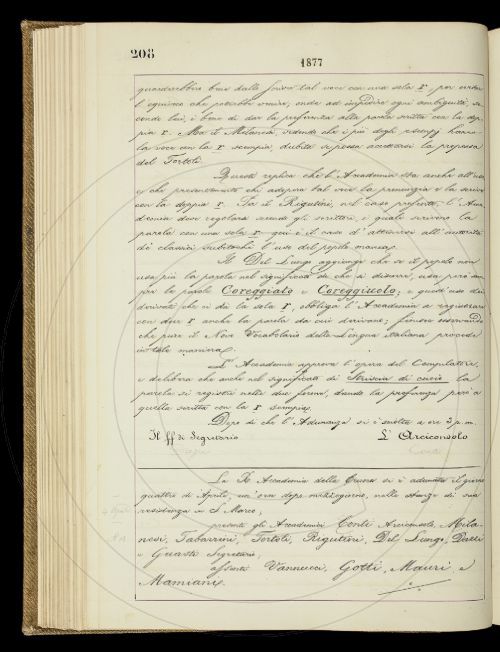 208
1877
guarderebbe bene dallo scriver tal voce con una sola r, per evitar
l'equivoco che potrebbe venire; onde ad impedire ogni ambiguità, se-
condo lui, è bene di dar la preferenza alla parola scritta con la dop-
pia r. Ma il Milanesi, vedendo che i più degli esempj hanno
la voce con la r scempia, dubita se possa accettarsi la proposta
del Tortoli.
Questi replica che l'Accademia sta anche all'uso
e che presentemente chi adopera tal voce la pronunzia e la scrive
con la doppia r. Ma il Rigutini, nel caso presente, l'Acca-
demia deve regolarsi secondo gli scrittori, i quali scrivono la
parola con una sola r, qui è il caso d'attenersi all'autorità
de' classici, subitochè l'uso del popolo manca.
Il Del Lungo aggiunge che se il popolo non
usa più la parola nel significato di che si discorre, usa però sem-
pre le parole Coreggiato e Coreggiuolo; e questi due
derivati che ci dà la sola r, obbliga l'Accademia a registrare
con due r anche la parola da cui derivano; finisce osservando
che pure il Novo Vocabolario della Lingua italiana procede
in tale maniera.
L'Accademia approva l'opera del Compilatore,
e delibera che anche nel significato di Striscia di cuoio la
parola si registri nelle due forme, dando la preferenza però a
quella scritta con la r scempia.
Dopo di che l'Adunanza si è sciolta a ore 3 p.m.
Il ff. di Segretario L'Arciconsolo
La R. Accademia della Crusca si è adunata il giorno
quattro di Aprile, un'ora dopo mezzogiorno, nelle stanze di sua
residenza in S. Marco;
presenti gli Accademici Conti Arciconsolo, Mila-
nesi, Tabarrini, Tortoli, Rigutini, Del Lungo, Dazzi
e Guasti Segretario;
assenti Vannucci, Gotti, Mauri e
Mamiani.